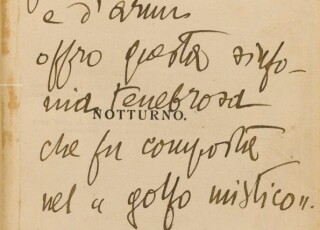 e d'armi
offro questa sinfo-
nia tenebrosa
NOTTURNO.
che fu composta
nel « golfo mistico ».